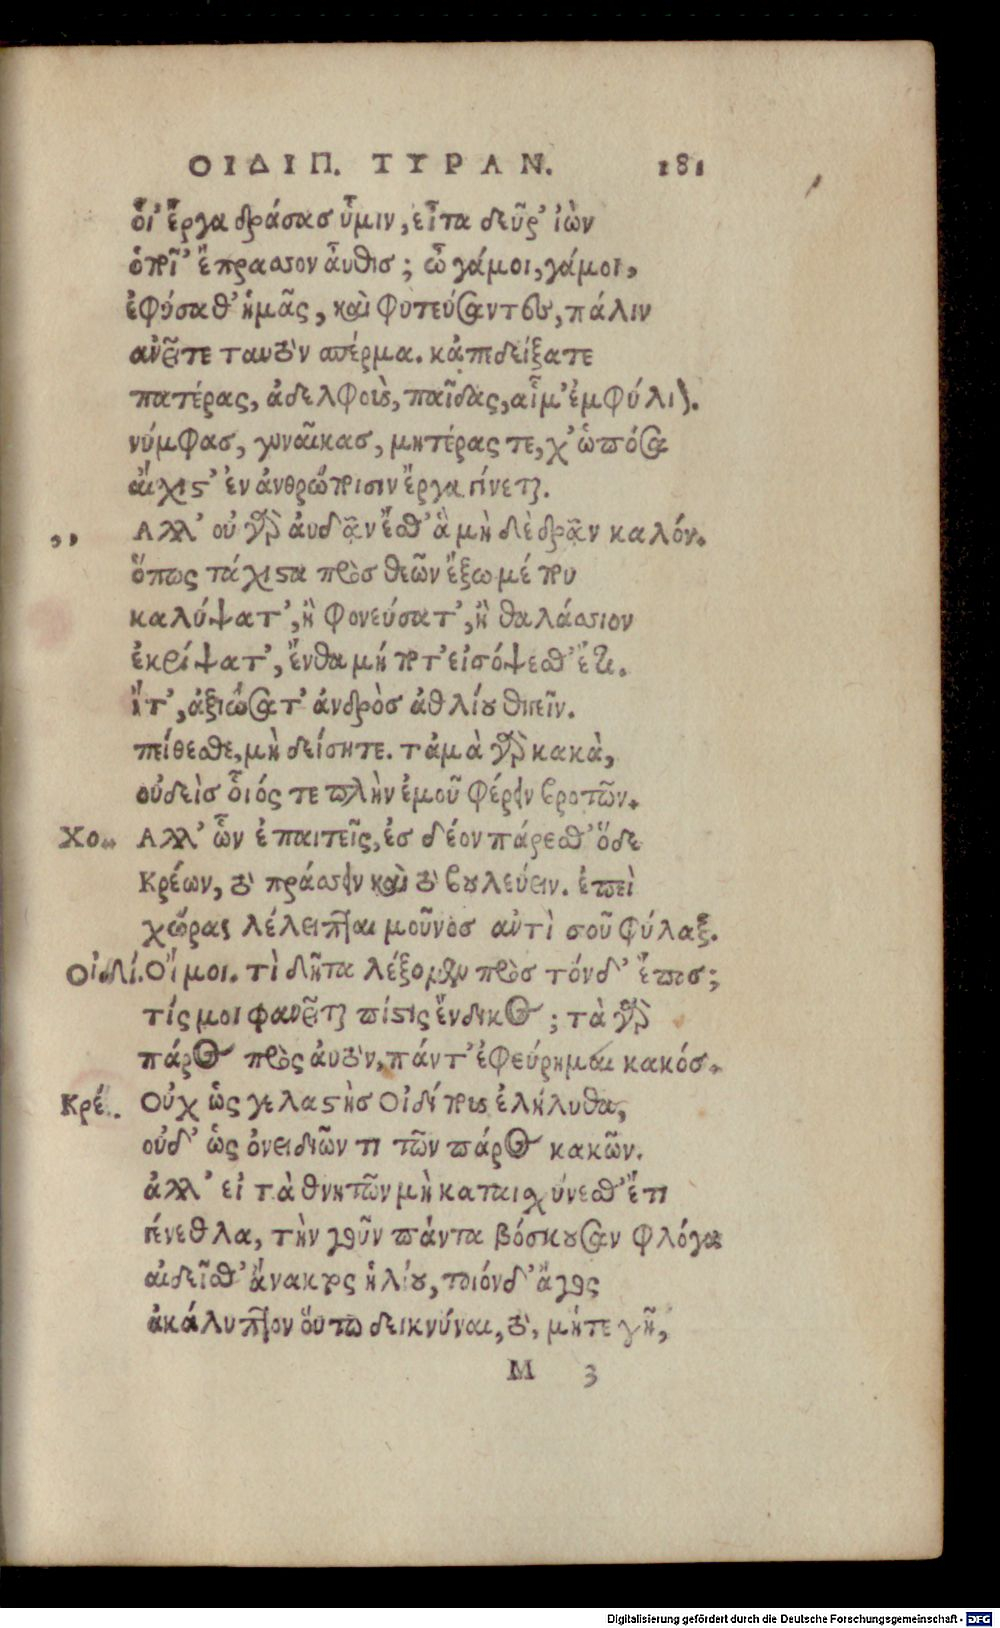 ΟΙΔΙΠ. ΤΥΡΑΝ. 181
οἷ' ἔργα δράσας ὕμιν, εἶτα δεῦρ' ἰὼν
ὁποῖ' ἔπρασσον αὖθις; ὦ γάμοι, γάμοι,
ἐφύσαθ' ἡμᾶς, καὶ φυτεύσαντες, πάλιν
ἀνεῖτε ταυτὸν σπέρμα. κἀπεδείξατε
πατέρας, ἀδελφοὺς, παῖδας, αἷμ' ἐμφύλιον.
νύμφας, γυναῖκας, μητέρας τε, χ' ὡπόσα
αἴχιστ' ἐν ἀνθρώποισιν ἔργα γίνεται.
,, Αλλ' οὐ γὰρ ἀυδᾷν ἔσθ' ἃ μὴ δὲ δρᾷν καλόν.
ὅπως τάχιστα πρὸς θεῶν ἔξω μέ που
καλύψατ', ἢ φονεύσατ', ἢ θαλάσσιον
ἐκρίψατ', ἔνθα μή ποτ' εἰσόψεσθ' ἔτι.
ἴτ', ἀξιώσατ' ἀνδρὸς ἀθλίου θιγεῖν.
πείθεσθε, μὴ δείσητε. τἀμὰ γὰρ κακὰ,
οὐδεὶς οἷός τε πλὴν ἐμοῦ φέρειν βροτῶν.
Χο. Αλλ' ὧν ἐπαιτεῖς, ἐς δέον πάρεσθ' ὅδε
Κρέων, τὸ πράσσειν καὶ τὸ βουλεύειν. ἐπεὶ
χώρας λέλειπται μοῦνος ἀντὶ σοῦ φύλαξ.
Οἰδί. Οἴμοι. τὶ δῆτα λέξομεν πρὸς τόνδ' ἔπος;
τίς μοι φανεῖται πίστις ἔνδικος; τὰ γὰρ
πάρος πρὸς ἀυτὸν, πάντ' ἐφεύρημαι κακός.
Κρέ. Οὐχ ὡς γελαστὴς Οἰδίπους ἐλήλυθα,
οὐδ' ὡς ὀνειδιῶν τι τῶν πάρος κακῶν.
ἀλλ' εἰ τὰ θνητῶν μὴ καταισχύνεσθ' ἔτι
γένεθλα, τὴν γοῦν πάντα βόσκουσαν φλόγα
αἰδεῖσθ' ἄνακτος ἡλίου, τοιόνδ' ἄγος
ἀκάλυπτον οὕτω δεικνύναι, τὸ, μήτε γῆ,
M 3
Digitalisierung gefördert durch die Deutsche Forschungsgemeinschaft - DFG